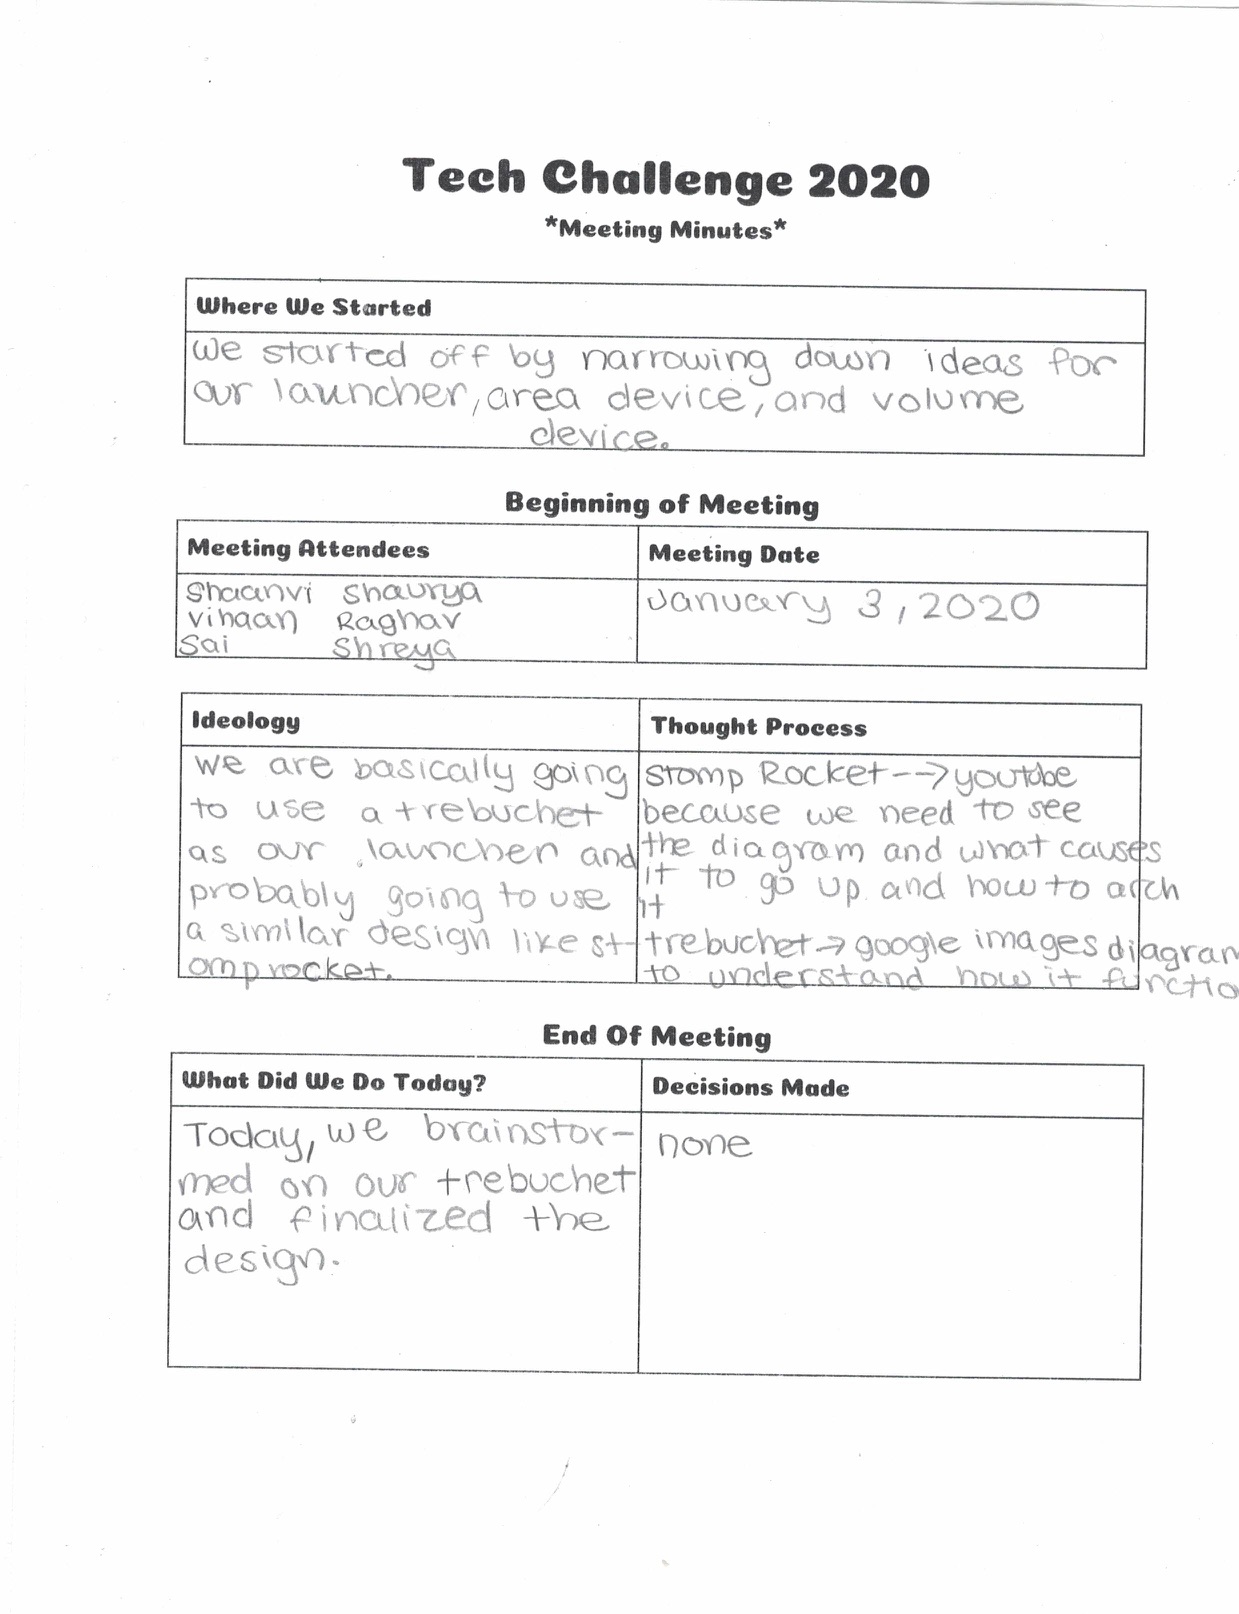 Tech Challenge 2020
*Meeting Minutes*
Where We Started
we started off by narrowing down ideas for
our launcher, area device, and volume
device.
Beginning of Meeting
Meeting Attendees
Meeting Date
Shaanvi Shaurya
vihaan Raghav
Sai Shreya
January 3, 2020
Ideology
Thought Process
we are basically going
to use a trebuchet
as our launcher and
probably going to use
a similar design like st-
omp rocket.
Stomp Rocket --> youtube
because we need to see
the diagram and what causes
it to go up and how to arch
it
trebuchet -> google images diagram
to understand how it functio
End Of Meeting
What Did We Do Today?
Decisions Made
Today, we brainstor-
med on our trebuchet
and finalized the
design.
none